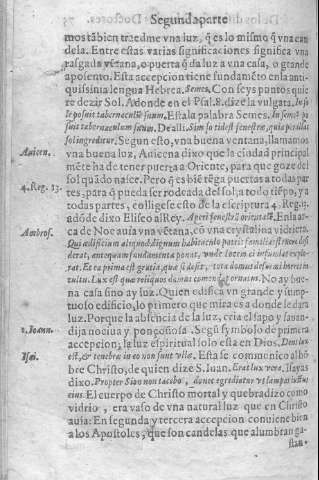 Segunda parte
mos tãbien traedme vna luz, q̃ es lo mismo q̃ vna can
dela. Entre estas varias significaciones significa vna
rasgada vẽtana, o puerta q̃ da luz a vna casa, o grande
aposento. Esta accepcion tiene fundamẽto en la anti-
quissima lengua Hebrea. Semes, Con seys puntos quie
re dezir Sol. Adonde en el Psal. 8. dize la vulgata. In so
le posuit tabernaculũ suum. Esta la palabra Semes. In semes po
suit tabernaculum suum. De alli. Sim
sol ingreditur. Segun esto, vna buena ventana, llamamos
Auicen. vna buena luz, Auicena dixo que la ciudad principal
mẽte ha de tener puerta a Oriente, para que goze del
sol quãdo nasce. Pero q̃ es biẽ tẽga puertas a todas par
4. Reg. 13. tes, para q̃ pueda ser rodeada del sol, a todo tiẽpo, y a
todas partes, colligese esto de la escriptura 4. Reg. 13.
adõde dixo Eliseo al Rey. Aperi fenestrã orientalẽ. En la ar
Ambros. ca de Noe auia vna vẽtana, cõ vna crystallina vidriera.
Qui ædificium aliquod dignum habitaculo patris familias struere desi
derat, antequam fundamenta ponat, vnde lucem ei infundat explo-
rat. Et ea prima est gratia, quæ si desit, tota domus deformi horret in
cultu. Lux est quæ reliquos domus commẽdat ornatus. No ay bue-
na casa sino ay luz. Quien edifica vn grande y sump-
tuoso edificio, lo primero que mira es a donde le dara
luz. Porque la absencia de la luz, cria el sapo y sauan-
dija nociua y ponçoñosa. Segũ symbolo de primera
1. Ioann. accepcion, la luz espiritual solo esta en Dios. Deus lux
est, & tenebræ in eo non sunt vllæ. Esta se communico al hõ
Isai. bre Christo, de quien dize S. Iuan. Erat lux vera, Isayas
dixo. Propter Sion non tacebo, donec egrediatur vt lampas iustus
eius. El cuerpo de Christo mortal y quebradizo como
vidrio, era vaso de vna natural luz que en Christo
auia: En segunda y tercera accepcion conuiene bien
a los Apostoles, que son candelas que alumbran ga-
stan-